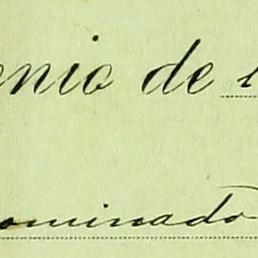 onio de
ominado